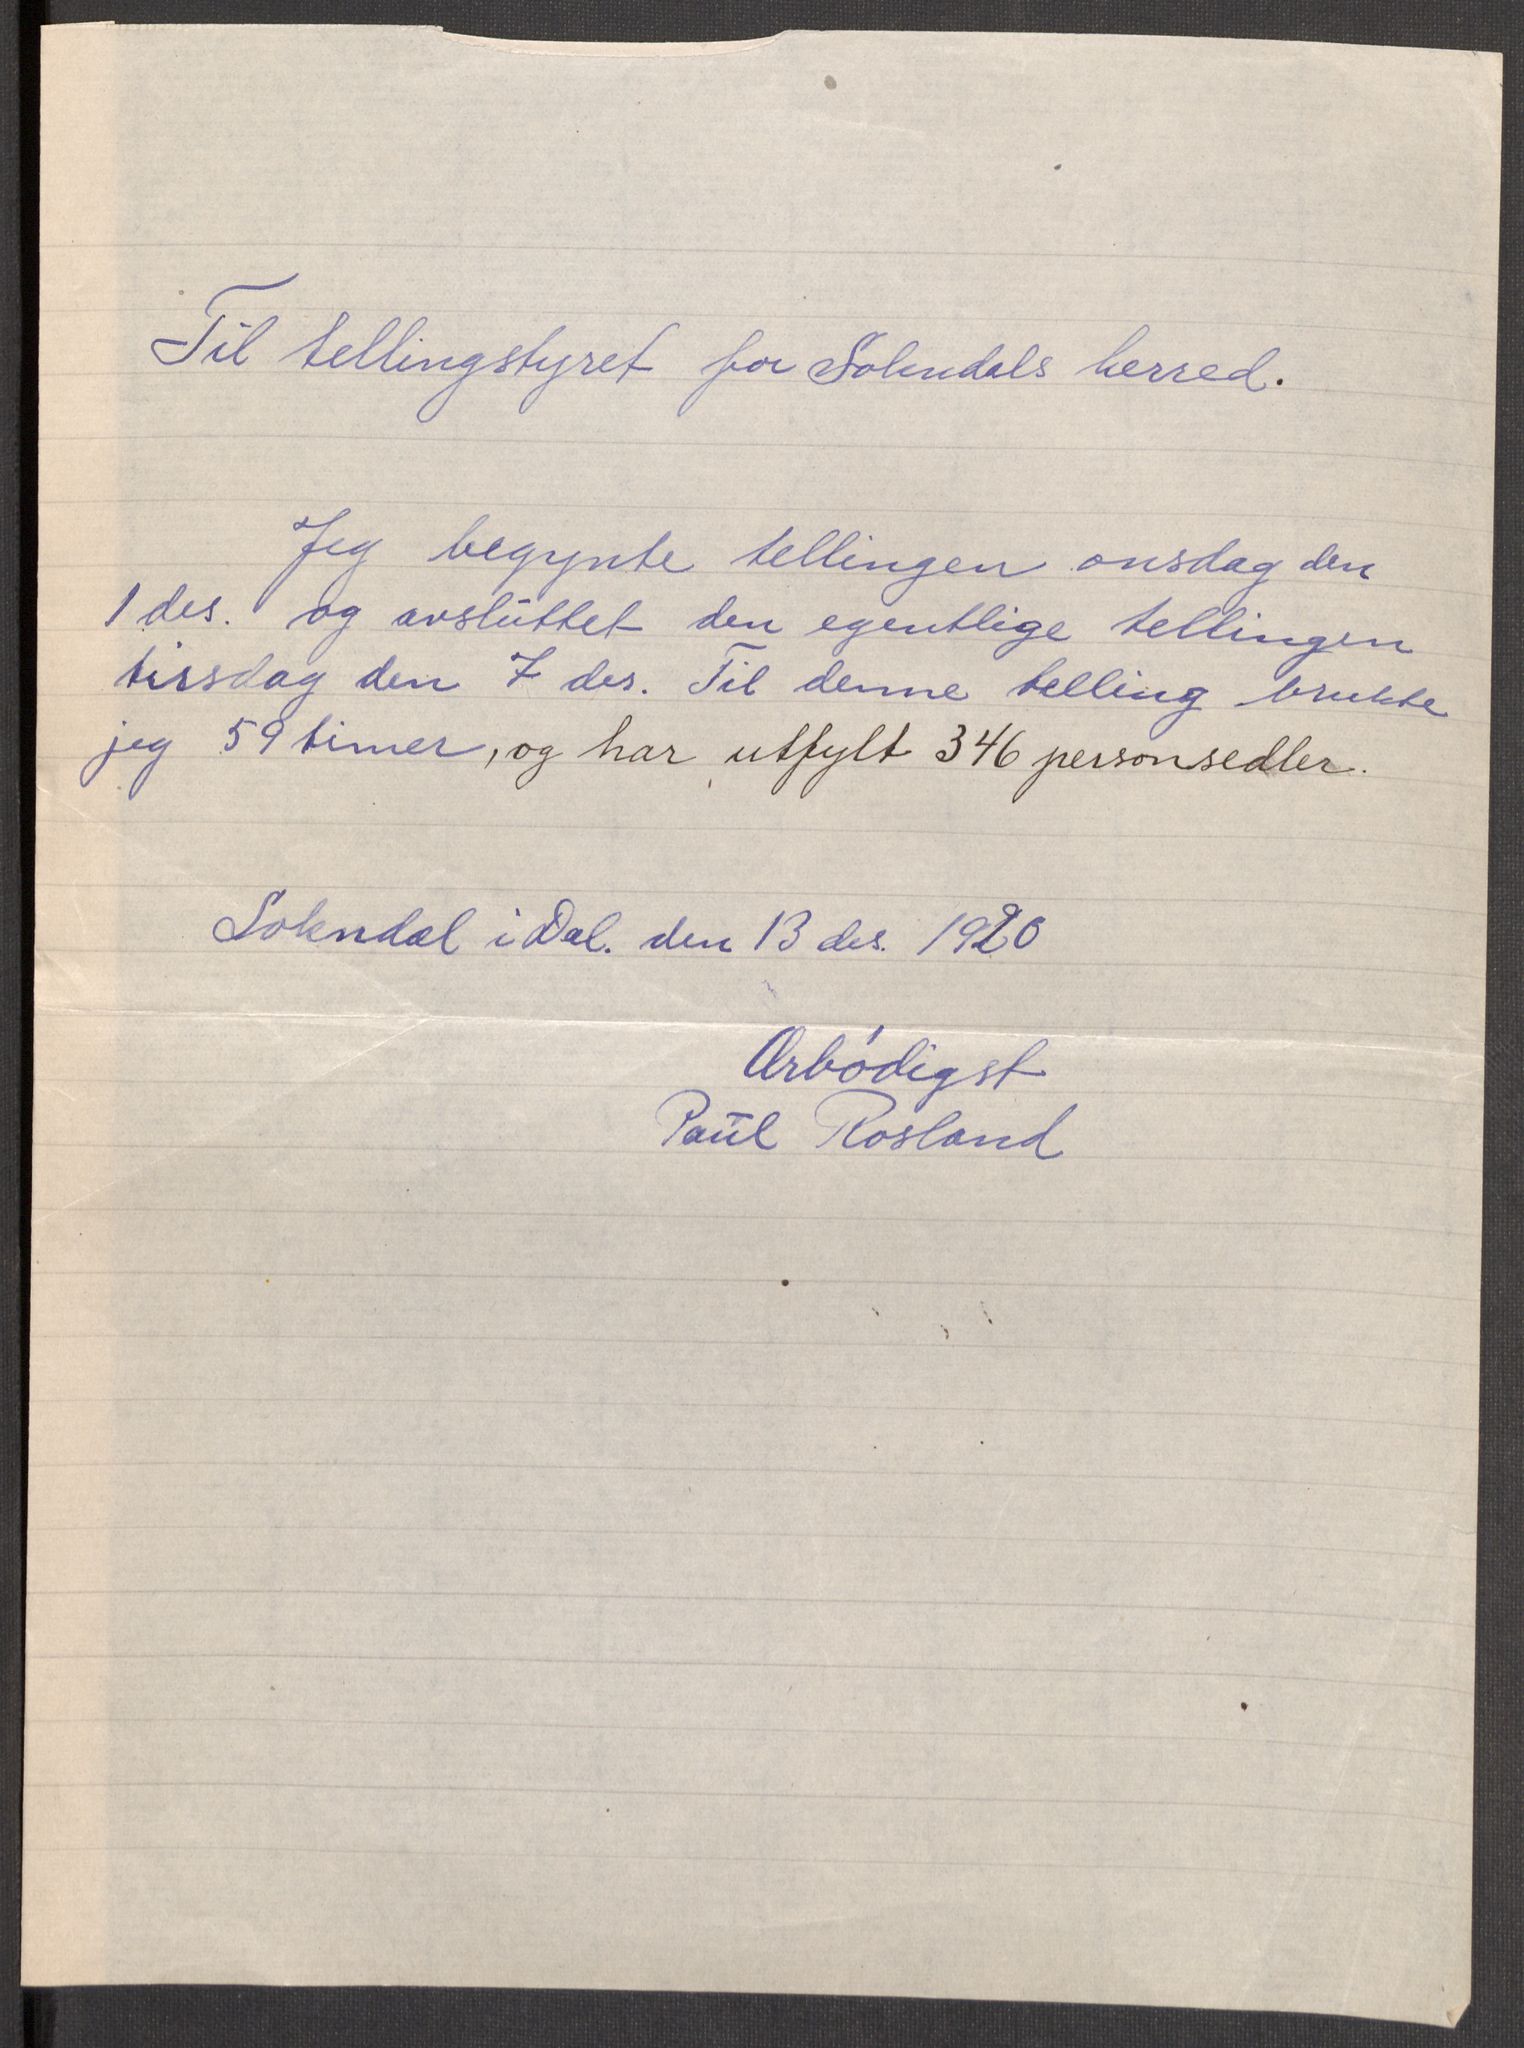 Til tellingstyret for Sokndals herred.
Jeg begynte tellingen onsdag den
1 des. og avsluttet den egentlige tellingen
tirsdag den 7 des. Til denne telling brukte
jeg 59 timer, og har utfylt 346 personsedler.
Sokndal i Dal. den 13 des. 1920
Ærbødigst
Paul Rosland